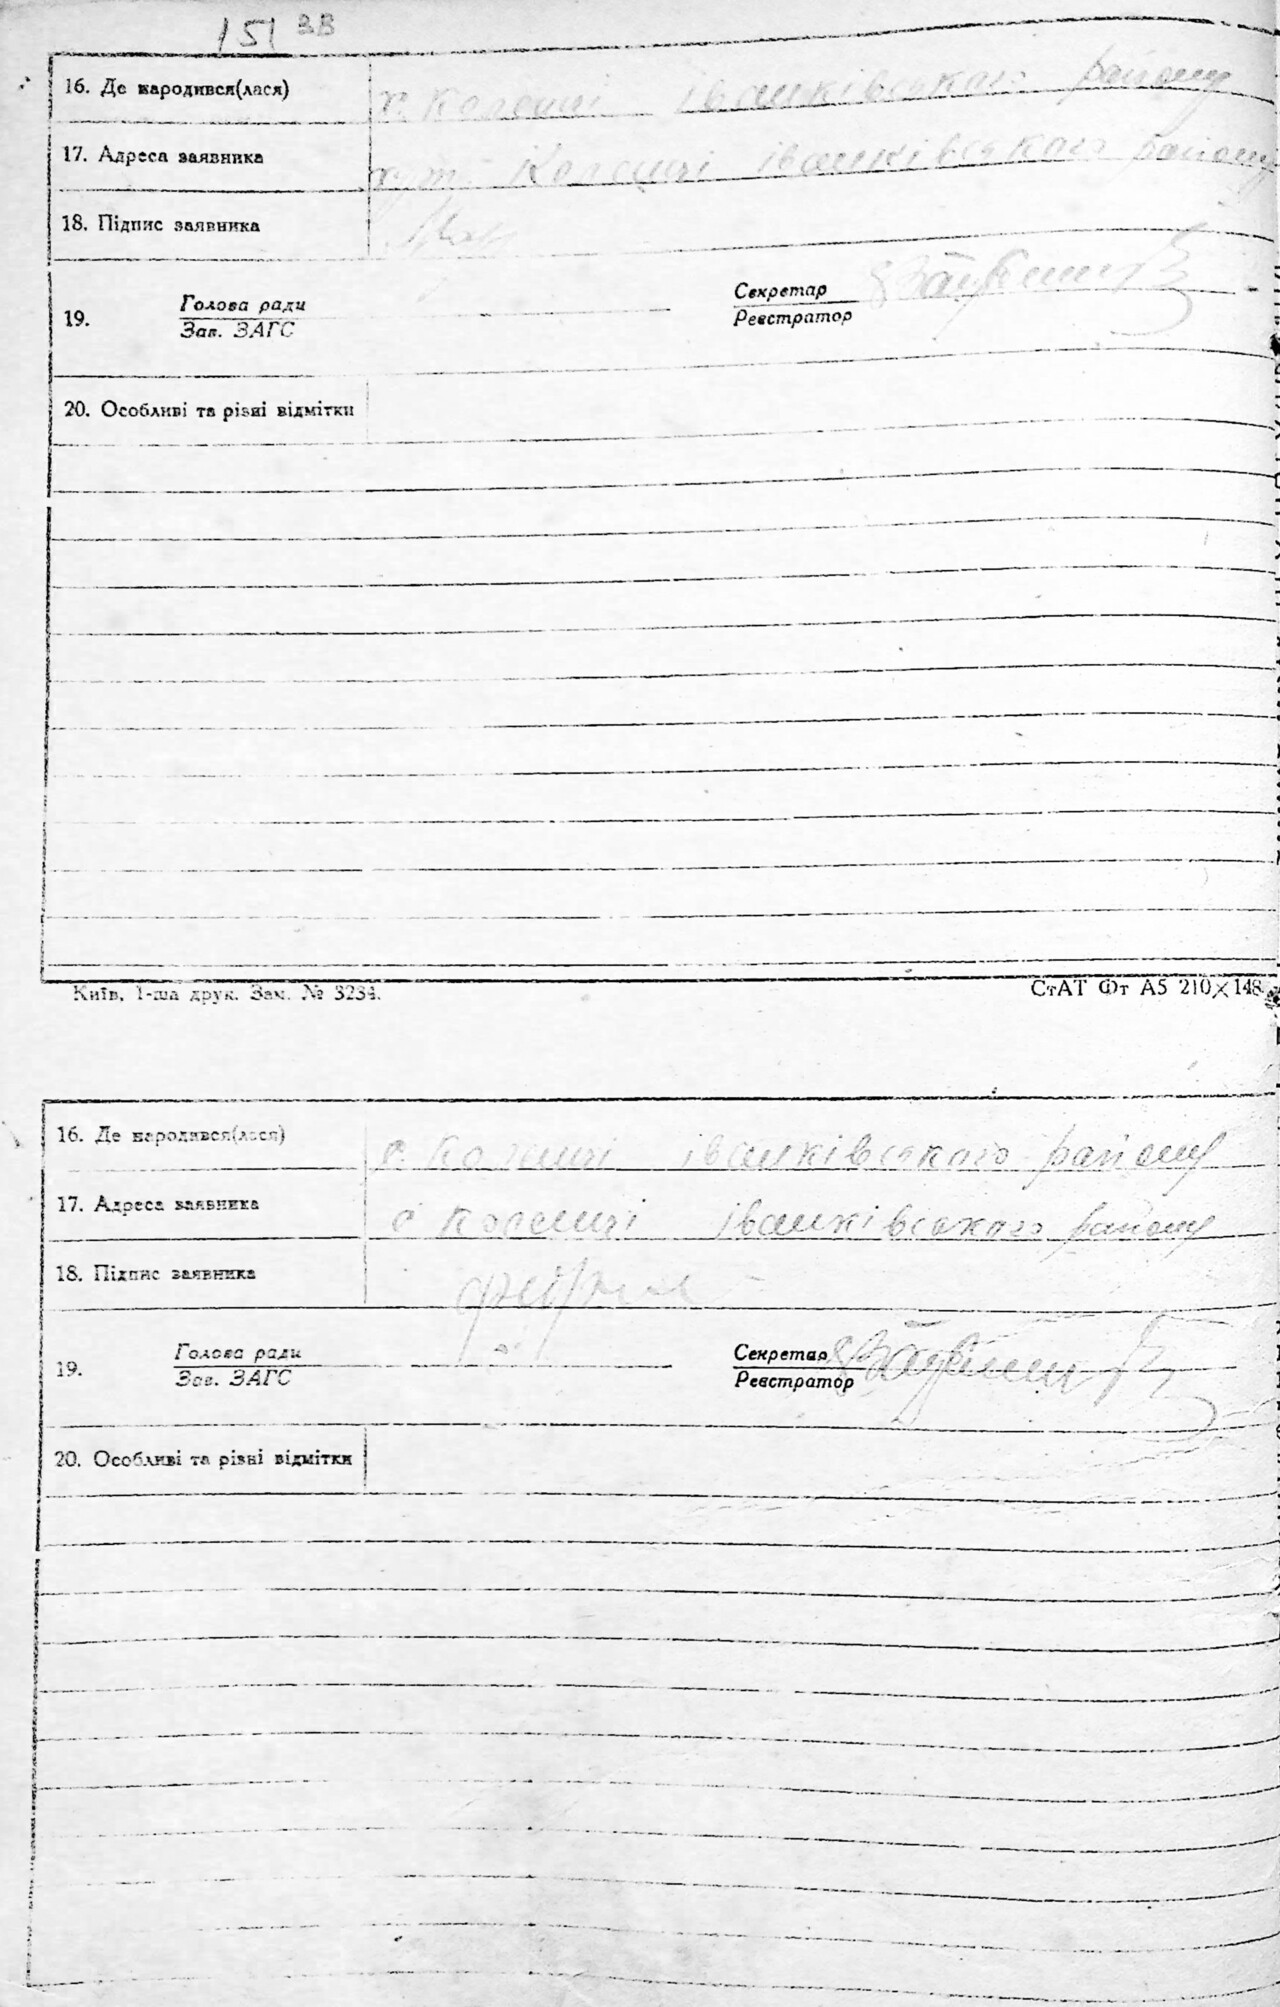 151 зв
16. Де народився(лася) х. Коленці іванківського району
17. Адреса заявника хут. Коленці іванківського району
18. Підпис заявника
19. Голова ради Секретар
Зав. ЗАГС Реєстратор
20. Особливі та різні відмітки
Київ, 1-ша друк. Зам. № 3234. СтАТ Фт А5 210×148
16. Де народився(лася) с. Коленці іванківського району
17. Адреса заявника с Коленці іванківського району
18. Підпис заявника
19. Голова ради Секретар
Зав. ЗАГС Реєстратор
20. Особливі та різні відмітки